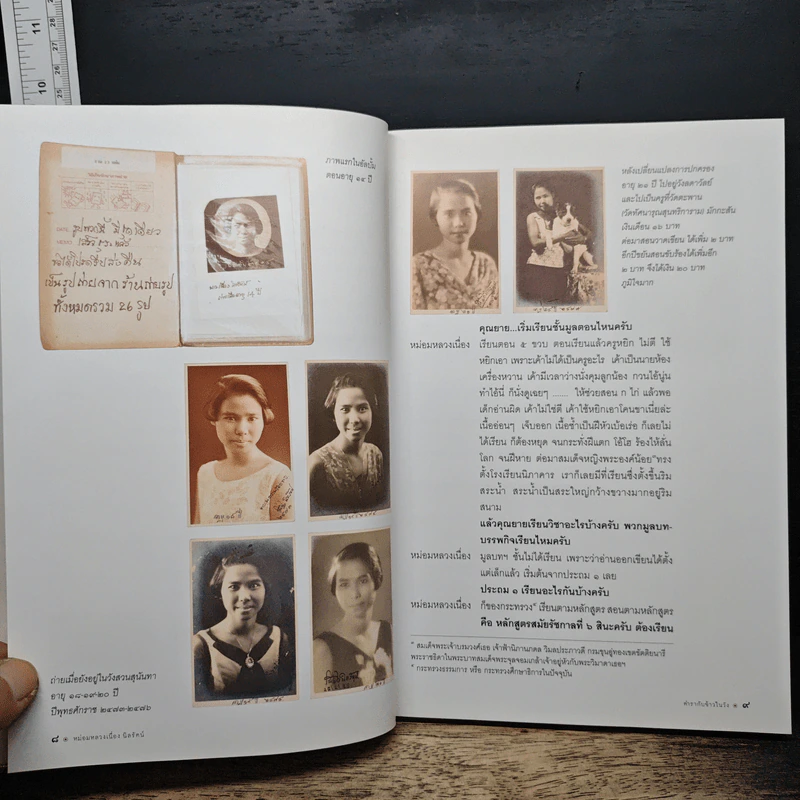 11
10
28
27
26
25
ภาพแรกในอัลบั้ม
ตอนอายุ ๑๔ ปี
เป็นรูปถ่ายจาก ร้านถ่ายรูป
ทั้งหมดรวม 26 รูป
ถ่ายเมื่อยังอยู่ในวังสวนสุนันทา
อายุ ๑๘-๑๙-๒๐ ปี
ปีพุทธศักราช ๒๔๗๓-๒๔๗๖
๘ หม่อมหลวงเนื่อง นิลรัตน์
หลังเปลี่ยนแปลงการปกครอง
อายุ ๒๑ ปี ไปอยู่วังลดาวัลย์
และไปเป็นครูที่วัดตะพาน
(วัดทัศนารุณสุนทริการาม) มักกะสัน
เงินเดือน ๑๖ บาท
ต่อมาสอนวาดเขียน ได้เพิ่ม ๒ บาท
อีกปีขยันสอนขับร้องได้เพิ่มอีก
๒ บาท จึงได้เงิน ๒๐ บาท
ภูมิใจมาก
คุณยาย...เริ่มเรียนชั้นมูลตอนไหนครับ
หม่อมหลวงเนื่อง เรียนตอน ๕ ขวบ ตอนเรียนแล้วครูหยิก ไม่ตี ใช้
หยิกเอา เพราะเค้าไม่ได้เป็นครูอะไร เค้าเป็นนายห้อง
เครื่องหวาน เค้ามีเวลาว่างนั่งคุมลูกน้อง กวนไอ้นู่น
ทำไอ้นี่ ก็นั่งดูเฉยๆ ....... ให้ช่วยสอน ก ไก่ แล้วพอ
เด็กอ่านผิด เค้าไม่ใช่ตี เค้าใช้หยิกเอาโคนขาเนี่ยล่ะ
เนื้ออ่อนๆ เจ็บออก เนื้อช้ำเป็นฝีหัวเบ้อเร่อ ก็เลยไม่
ได้เรียน ก็ต้องหยุด จนกระทั่งฝีแตก โอ้โฮ ร้องไห้ลั่น
โลก จนฝีหาย ต่อมาสมเด็จหญิงพระองค์น้อย ทรง
ตั้งโรงเรียนนิภาคาร เราก็เลยมีที่เรียนซึ่งตั้งขึ้นริม
สระน้ำ สระน้ำเป็นสระใหญ่กว้างขวางมากอยู่ริม
สนาม
แล้วคุณยายเรียนวิชาอะไรบ้างครับ พวกมูลบท-
บรรพกิจเรียนไหมครับ
หม่อมหลวงเนื่อง มูลบทฯ ชั้นไม่ได้เรียน เพราะว่าอ่านออกเขียนได้ตั้ง
แต่เล็กแล้ว เริ่มต้นจากประถม ๑ เลย
ประถม ๑ เรียนอะไรกันบ้างครับ
หม่อมหลวงเนื่อง ก็ของกระทรวง เรียนตามหลักสูตร สอนตามหลักสูตร
คือ หลักสูตรสมัยรัชกาลที่ ๖ สินะครับ ต้องเรียน
สมเด็จพระเจ้าบรมวงศ์เธอ เจ้าฟ้านิภานภดล วิมลประภาวดี กรมขุนอู่ทองเขตขัตติยนารี
พระราชธิดาในพระบาทสมเด็จพระจุลจอมเกล้าเจ้าอยู่หัวกับพระวิมาดาเธอฯ
กระทรวงธรรมการ หรือ กระทรวงศึกษาธิการในปัจจุบัน
ตำรากับข้าวในวัง ๙